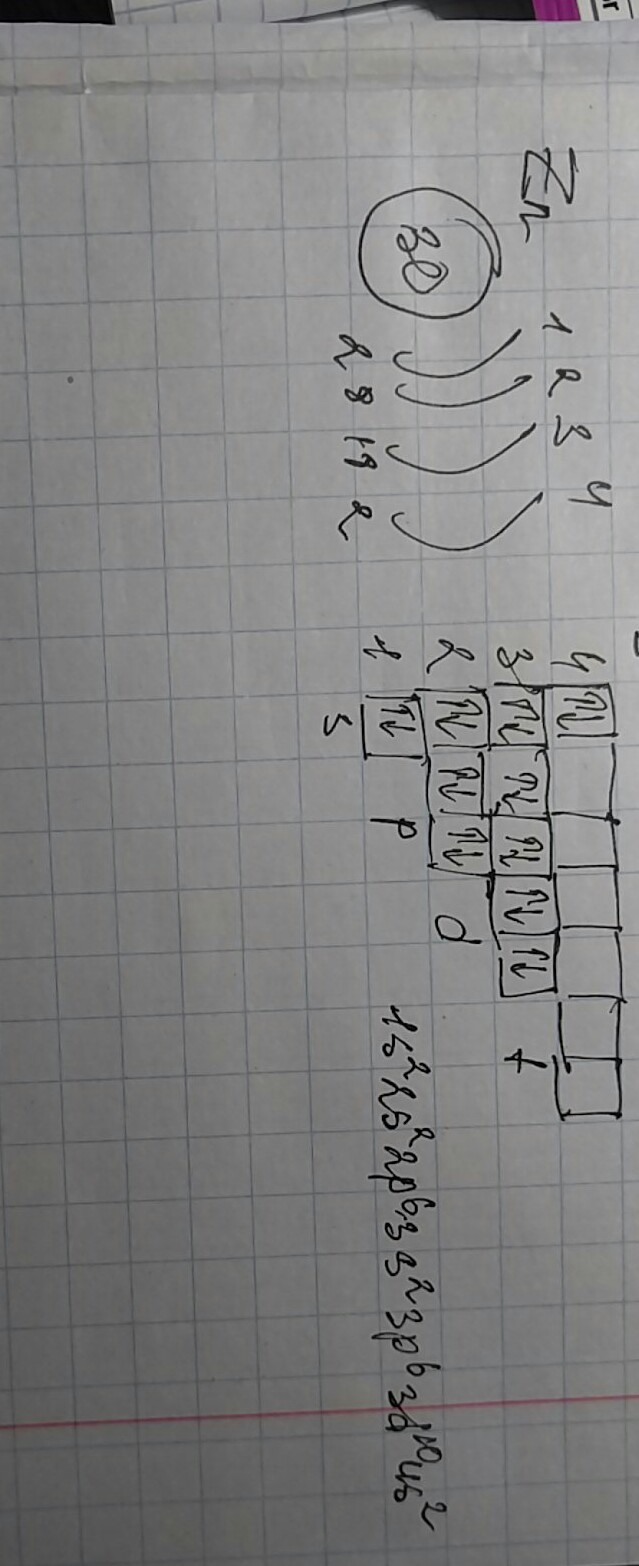 Zn
1 2 3 4
30
2 8 18 2
4
3
2
1
s p d f
1s² 2s² 2p⁶ 3s² 3p⁶ 3d¹⁰ 4s²